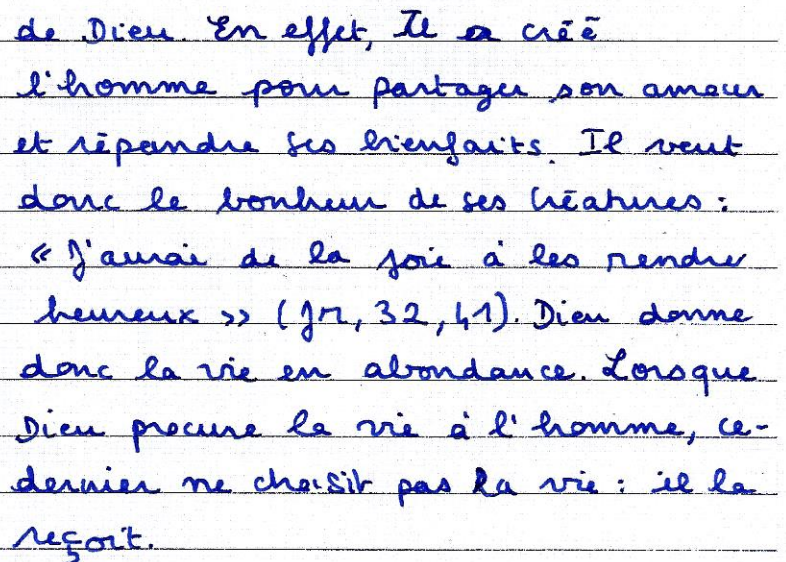 de Dieu. En effet, Il a créé
l'homme pour partager son amour
et répandre ses bienfaits. Il veut
donc le bonheur de ses créatures :
« J'aurai de la joie à les rendre
heureux » (Jr, 32, 41). Dieu donne
donc la vie en abondance. Lorsque
Dieu procure la vie à l'homme, ce-
dernier ne choisit pas la vie : il la
reçoit.